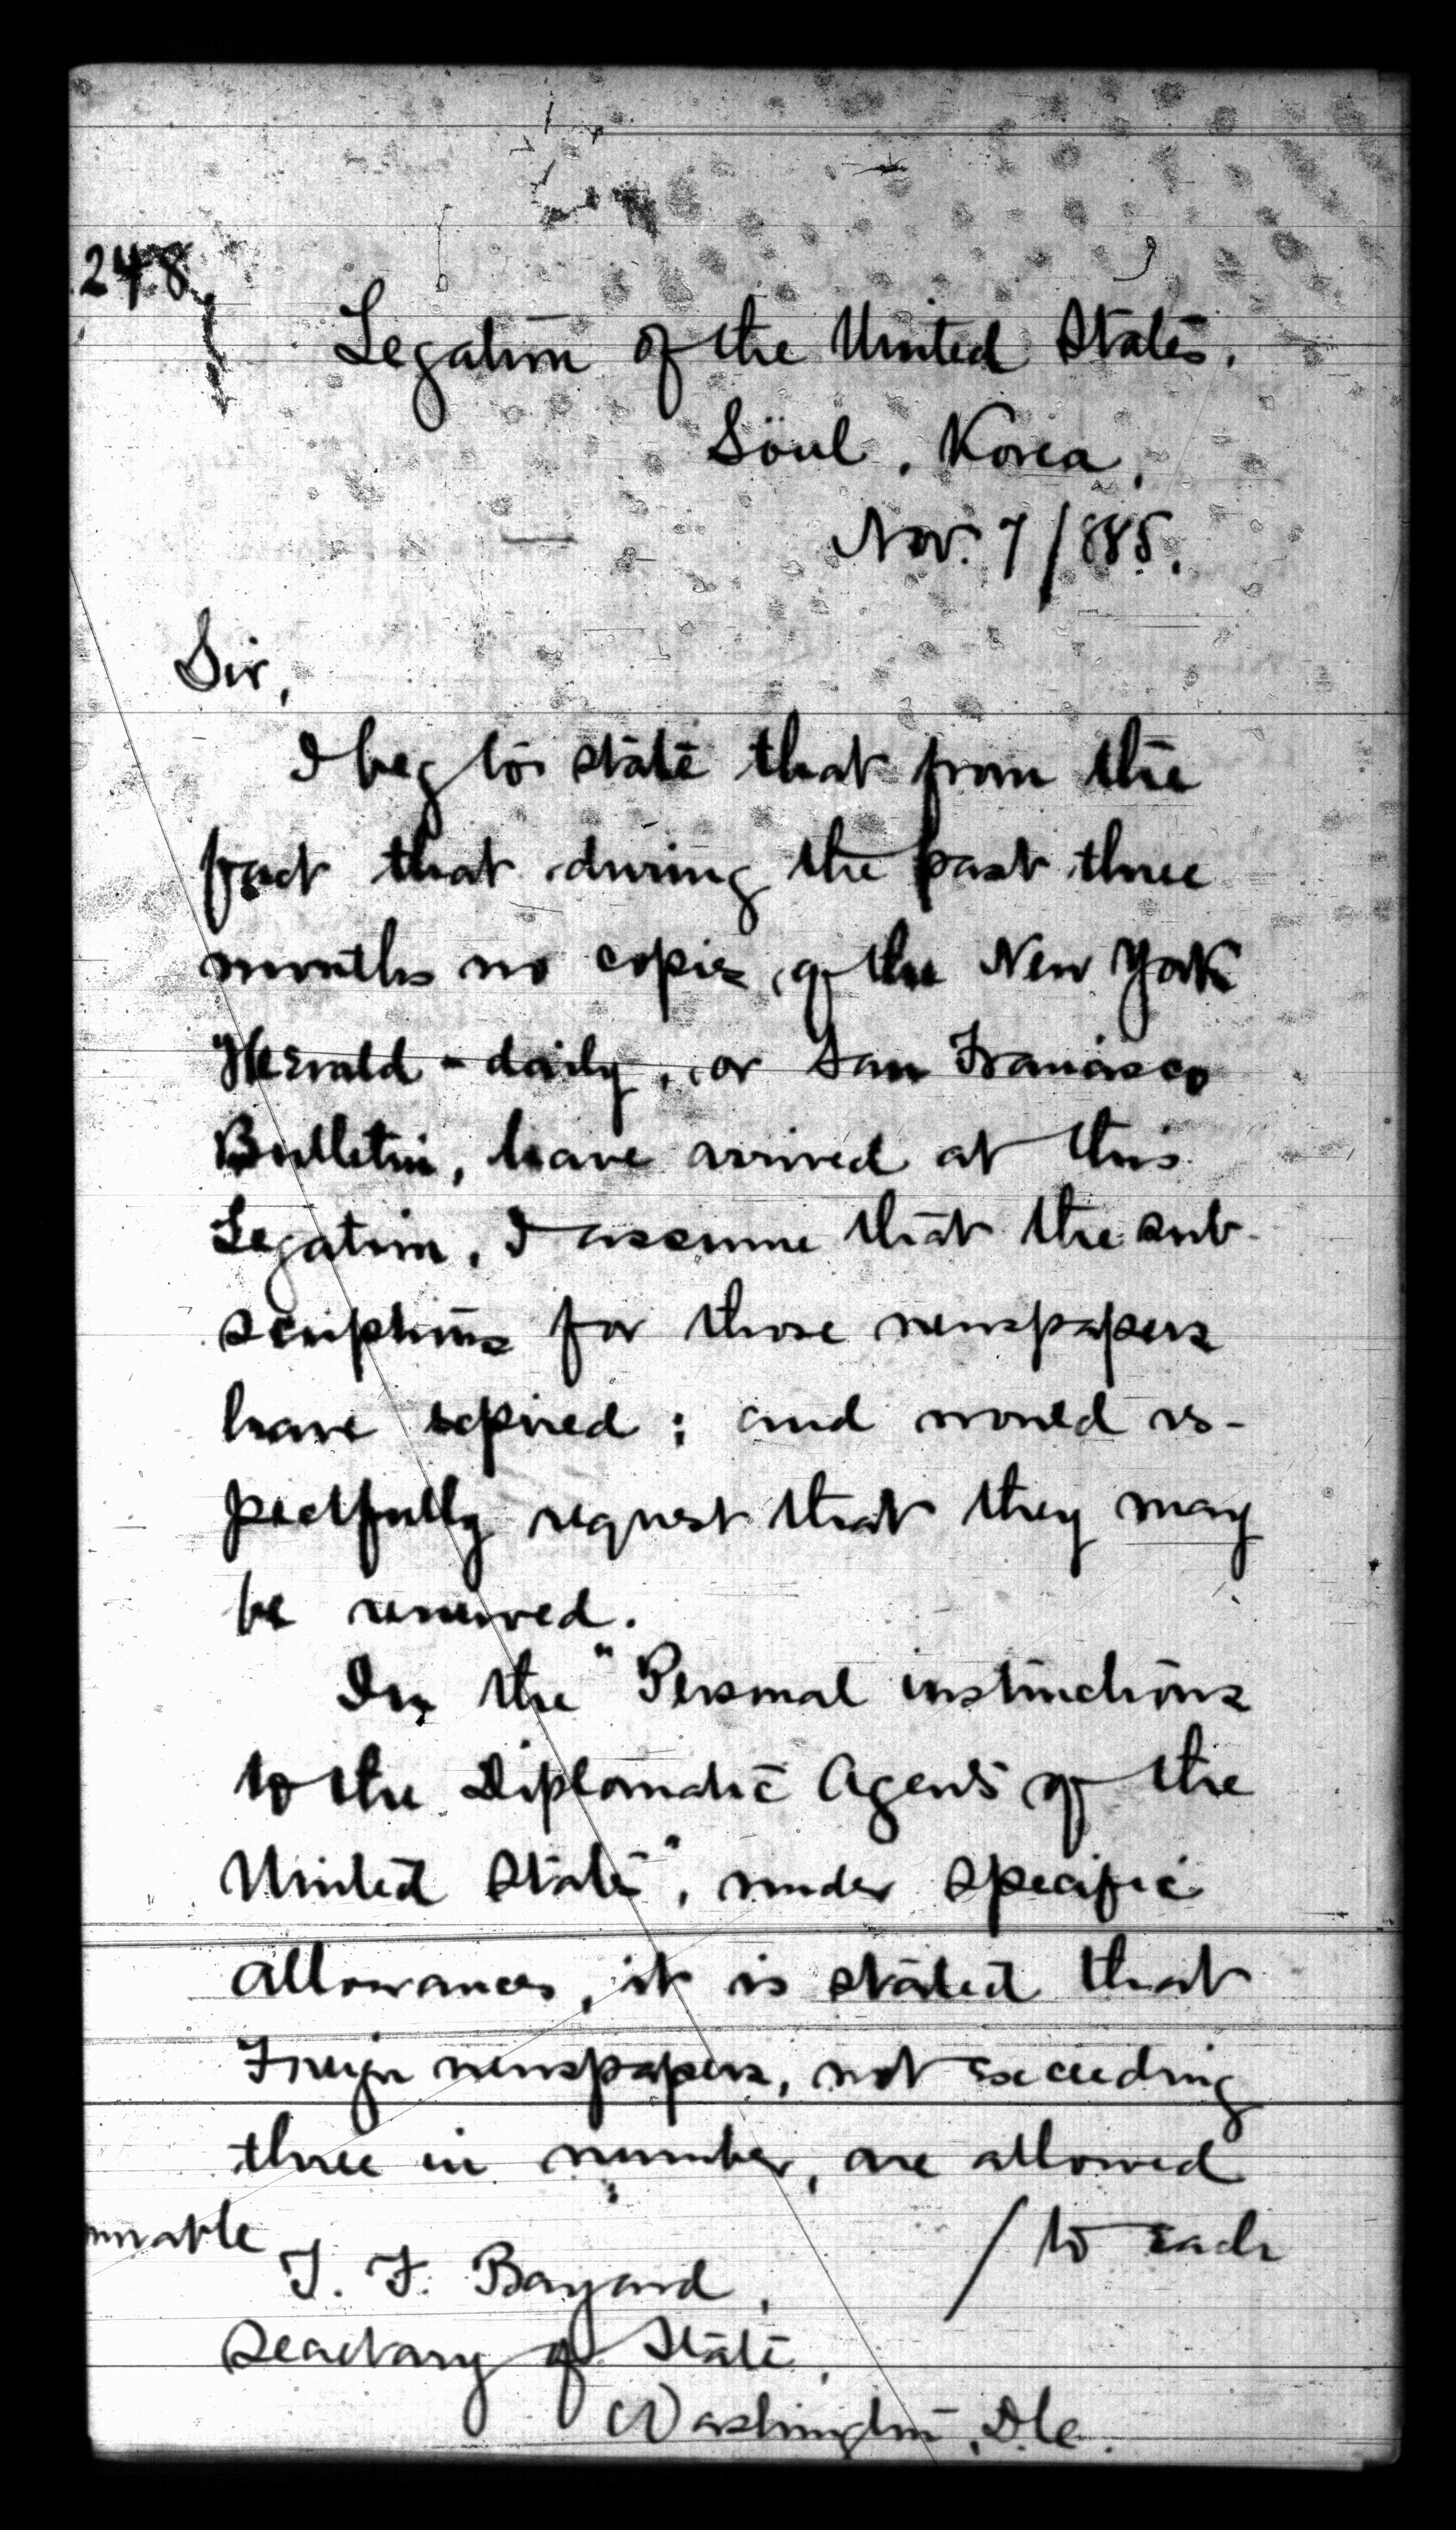 248
Legation of the United States.
Söul, Korea,
Nov. 7/885.
Sir,
I beg to state that from the
fact that during the past three
months no copies of the New York
Herald - daily, or San Francisco
Bulletin, have arrived at this
Legation, I assume that the sub-
scriptions for those newspapers
have expired; and would res-
pectfully request that they may
be renewed.
In the "Personal instructions
to the Diplomatic Agents of the
United States", under specific
allowances, it is stated that
Foreign newspapers, not exceeding
three in number, are allowed
/ to each
T. F. Bayard,
Secretary of State,
Washington, D.C.